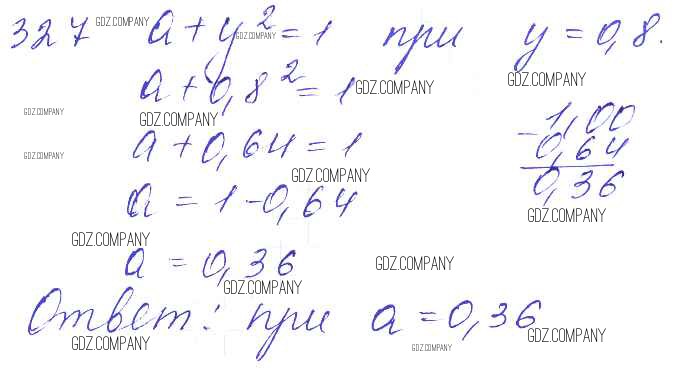 327 GDZ.COMPANY a + y² = 1 при y = 0,8.
GDZ.COMPANY
a + 0,8² = 1 GDZ.COMPANY GDZ.COMPANY
GDZ.COMPANY GDZ.COMPANY
a + 0,64 = 1
GDZ.COMPANY GDZ.COMPANY
a = 1 - 0,64
- 1,00
0,64
0,36
GDZ.COMPANY
GDZ.COMPANY
a = 0,36 GDZ.COMPANY
GDZ.COMPANY
Ответ: при a = 0,36
GDZ.COMPANY GDZ.COMPANY GDZ.COMPANY